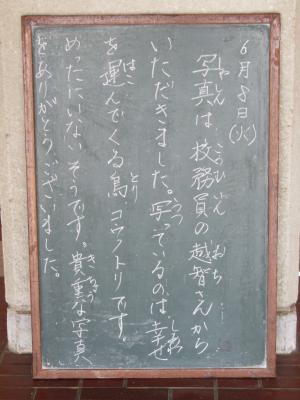 6月8日(火)
写真は、校務員の越智さんから
いただきました。写っているのは、幸せ
を運んでくる鳥 コウノトリです。
めったにいないそうです。貴重な写真
をありがとうございました。